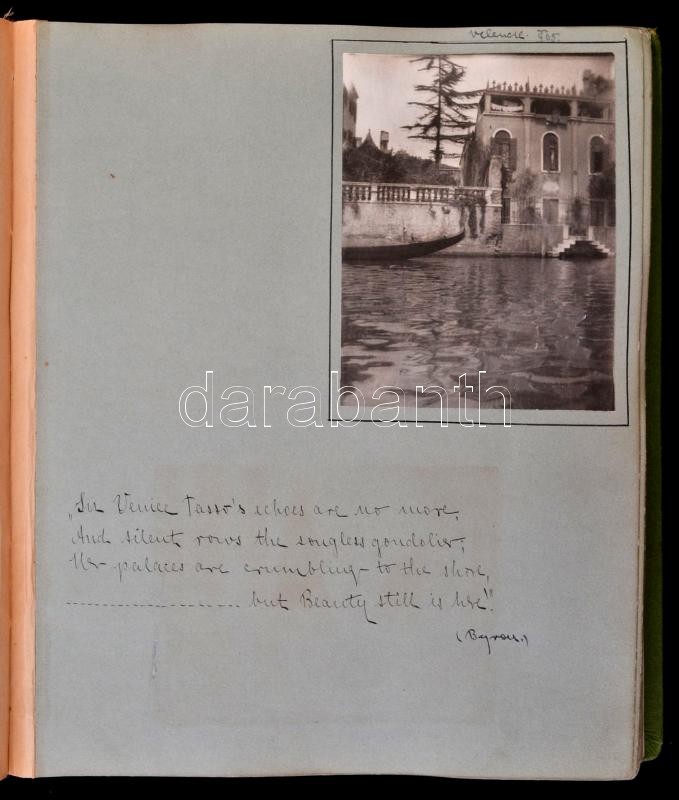 Velencze. 905.
darabanth
„In Venice Tasso's echoes are no more,
And silent rows the songless gondolier;
Her palaces are crumbling to the shore,
...................... but Beauty still is here".
(Byron.)